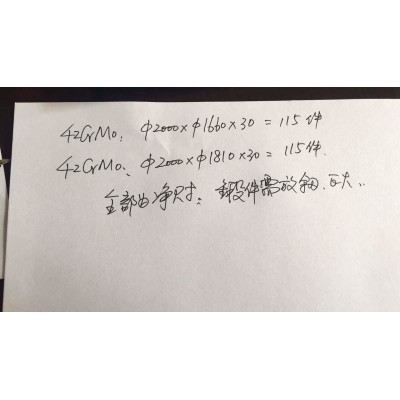 42CrMo: φ2000×φ1660×30=115件
42CrMo、φ2000×φ1810×30=115件.
全部为净尺寸。锻件需放余